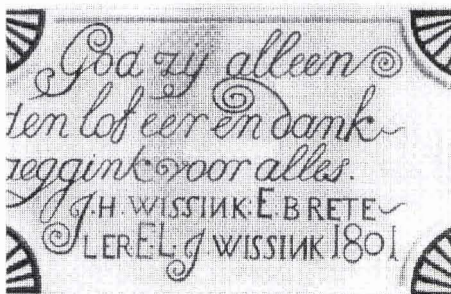 God zij alleen
den lof eer en dank
zeggink voor alles.
J·H·WISSINK·E·BRETE~
LER E·L·J WISSINK 1801